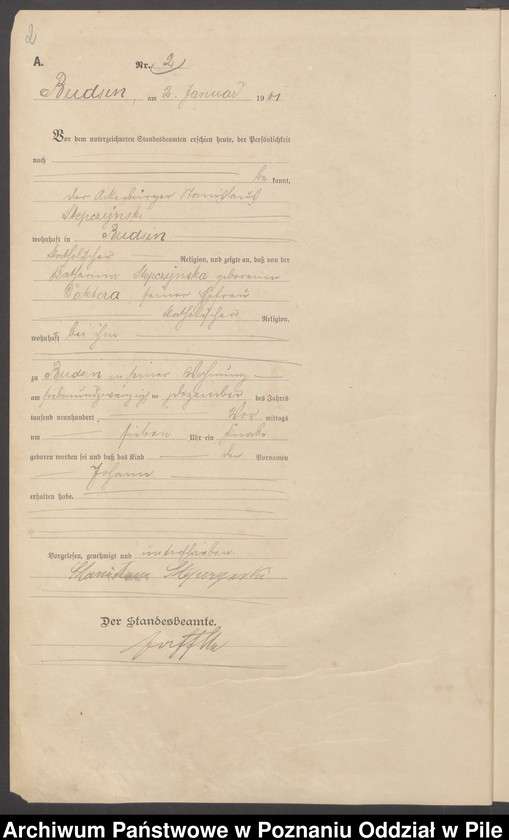 2
A. Nr. 2
Budsin, am 2. Januar 1901
Vor dem unterzeichneten Standesbeamten erschien heute, der Persönlichkeit
nach
be kannt,
der Ackerbürger Stanislaus
Stepczynski
wohnhaft in Budsin
katholischer Religion, und zeigte an, daß von der
Katharina Stepczynska geborenen
seiner Ehefrau
katholischer Religion,
wohnhaft bei ihm
zu Budsin in seiner Wohnung
am siebenundzwanzigsten Dezember des Jahres
tausend neunhundert Vor mittags
um sieben Uhr ein Knabe
geboren worden sei und daß das Kind den Vornamen
Johann
erhalten habe.
Vorgelesen, genehmigt und unterschrieben
Der Standesbeamte.
Archiwum Państwowe w Poznaniu Oddział w Pile